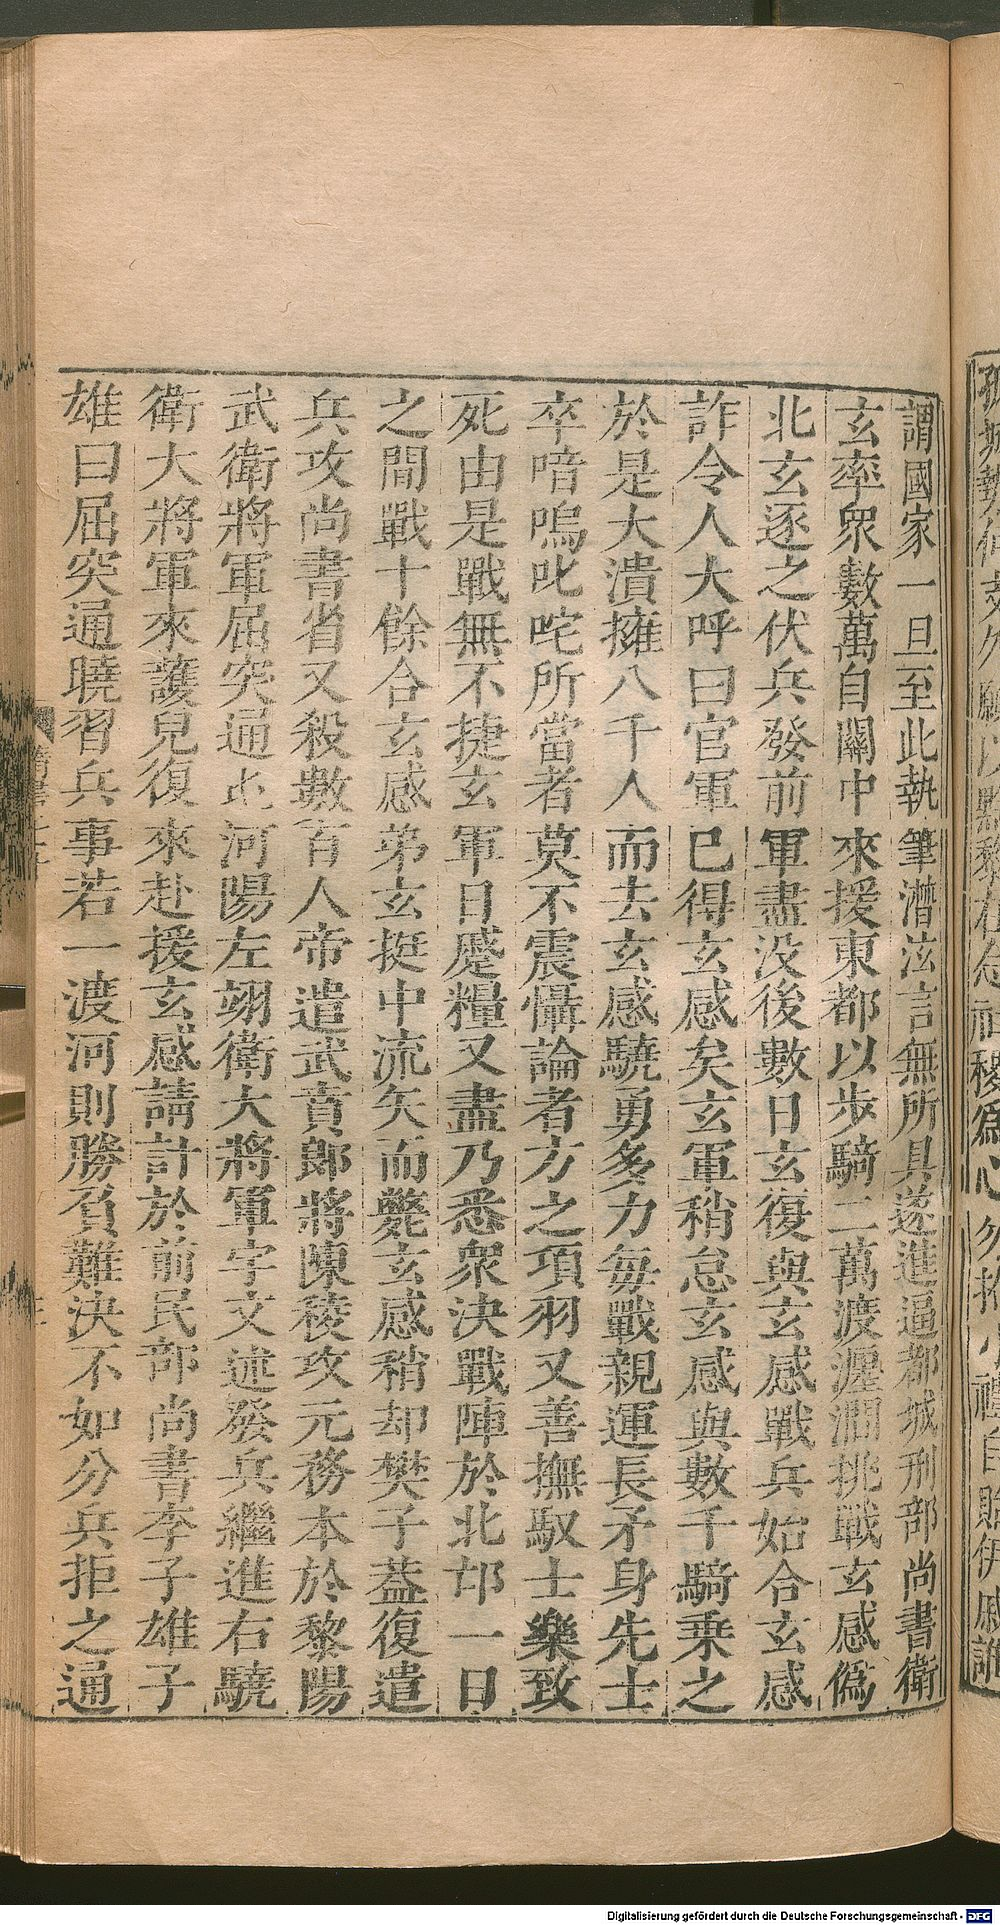 謂國家一旦至此執筆潸泫言無所具遂進逼都城刑部尚書衛
玄率眾數萬自關中來援東都以步騎二萬渡瀍澗挑戰玄感偽
北玄逐之伏兵發前軍盡没後數日玄復與玄感戰兵始合玄感
詐令人大呼曰官軍已得玄感矣玄軍稍怠玄感與數千騎乗之
於是大潰擁八千人而去玄感驍勇多力每戰親運長矛身先士
卒喑嗚叱咤所當者莫不震懾論者方之項羽又善撫馭士樂致
死由是戰無不捷玄軍日蹙糧又盡乃悉衆決戰陣於北邙一日
之間戰十餘合玄感弟玄挺中流矢而斃玄感稍却樊子葢復遣
兵攻尚書省又殺數百人帝遣武賁郎將陳稜攻元務本於黎陽
武衛將軍屈突通屯河陽左翊衛大將軍宇文述發兵繼進右驍
衛大將軍來護兒復來赴援玄感請計於前民部尚書李子雄子
雄曰屈突通曉習兵事若一渡河則勝負難決不如分兵拒之通
Digitalisierung gefördert durch die Deutsche Forschungsgemeinschaft - DFG